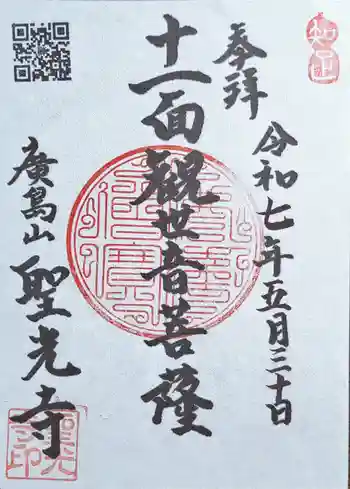 奉拝
令和七年五月三十日
十一面観世音菩薩
廣島山
聖光寺
知足